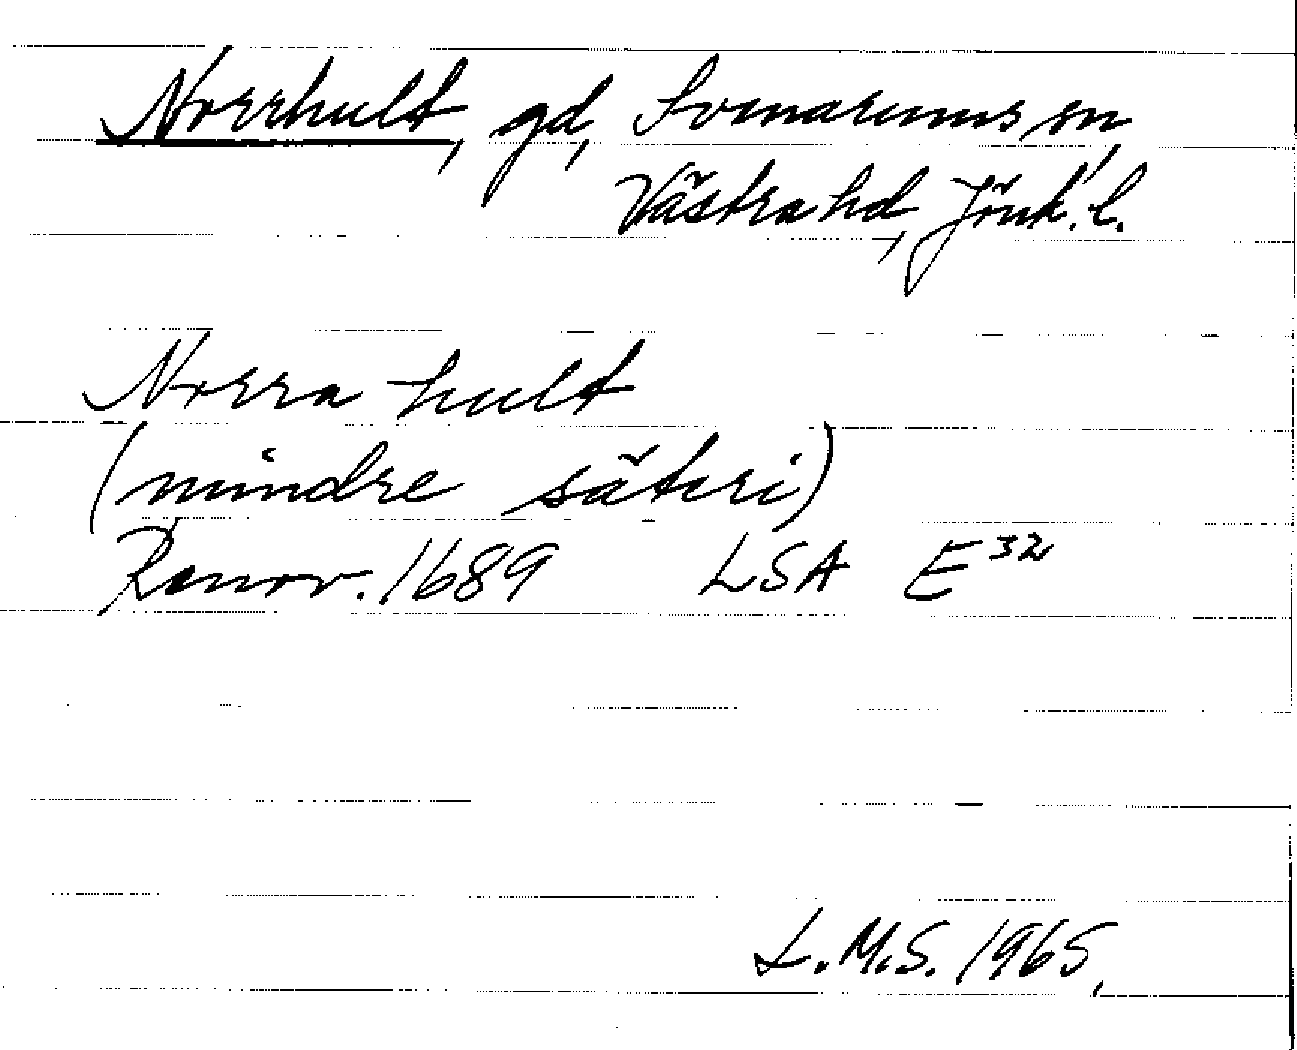 Norrhult, gd, Svenarums sn,
Västra hd, Jönk. l.
Norra hult
(mindre säteri)
Renov. 1689 LSA E32
L.M.S. 1965.